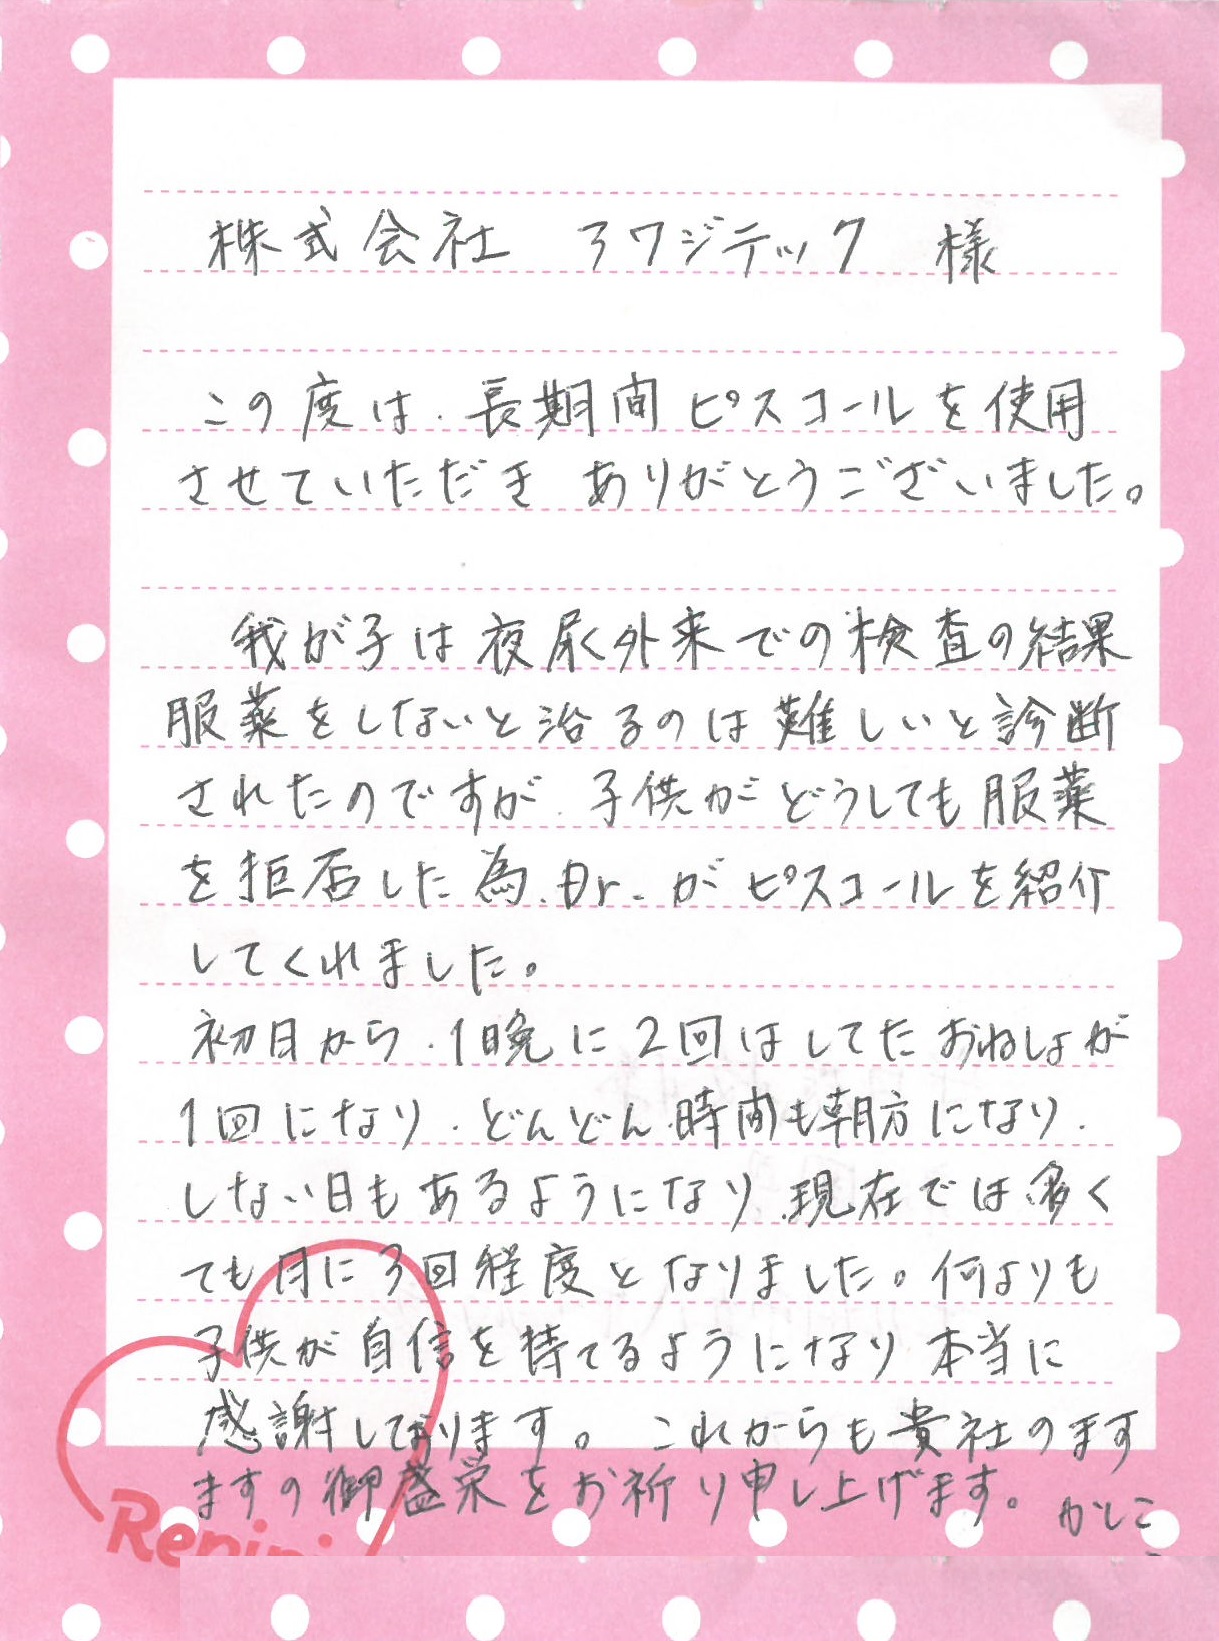 株式会社 アワジテック 様
この度は、長期間ピスコールを使用
させていただき ありがとうございました。
我が子は夜尿外来での検査の結果
服薬をしないと治るのは難しいと診断
されたのですが、子供がどうしても服薬
を拒否した為、Dr.がピスコールを紹介
してくれました。
初日から、1晩に2回はしてたおねしょが
1回になり、どんどん時間も朝方になり、
しない日もあるようになり、現在では多く
ても月に3回程度となりました。何よりも
子供が自信を持てるようになり本当に
感謝しております。 これからも貴社のます
ますの御盛栄をお祈り申し上げます。
かしこ